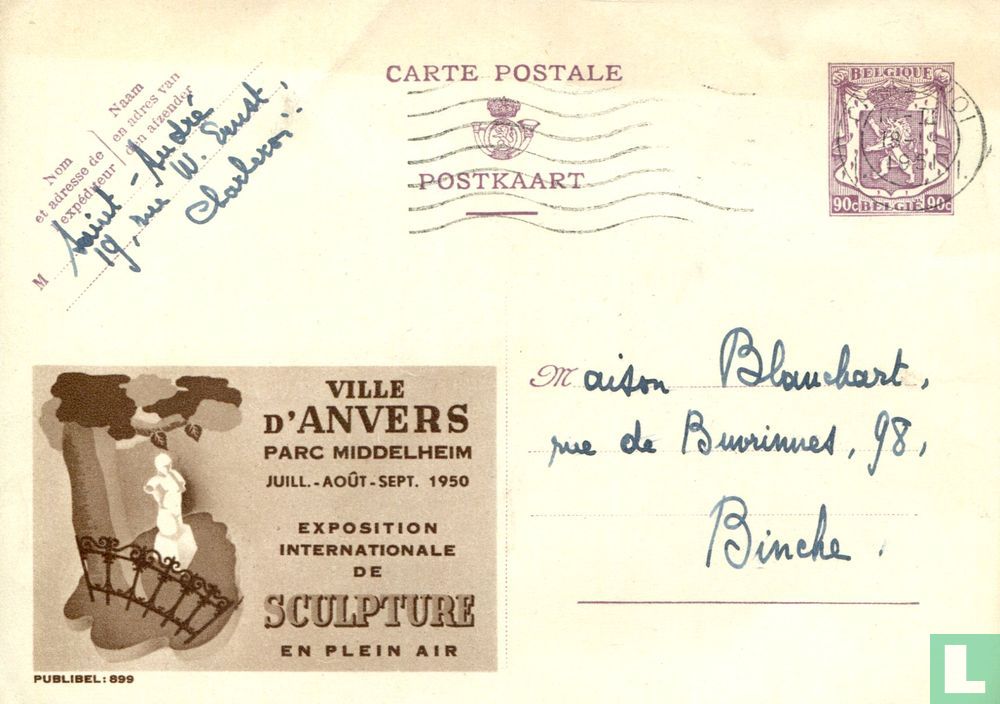 Nom
et adresse de
expéditeur
Naam
en adres van
den afzender
M Saint-André
19, rue W. Ernst,
Charleroi
CARTE POSTALE
POSTKAART
BELGIQUE
90c BELGIË 90c
VILLE
D'ANVERS
PARC MIDDELHEIM
JUILL.-AOÛT-SEPT. 1950
EXPOSITION
INTERNATIONALE
DE
SCULPTURE
EN PLEIN AIR
PUBLIBEL: 899
Maison Blanchart,
rue de Buvrinnes, 98,
Binche.
L